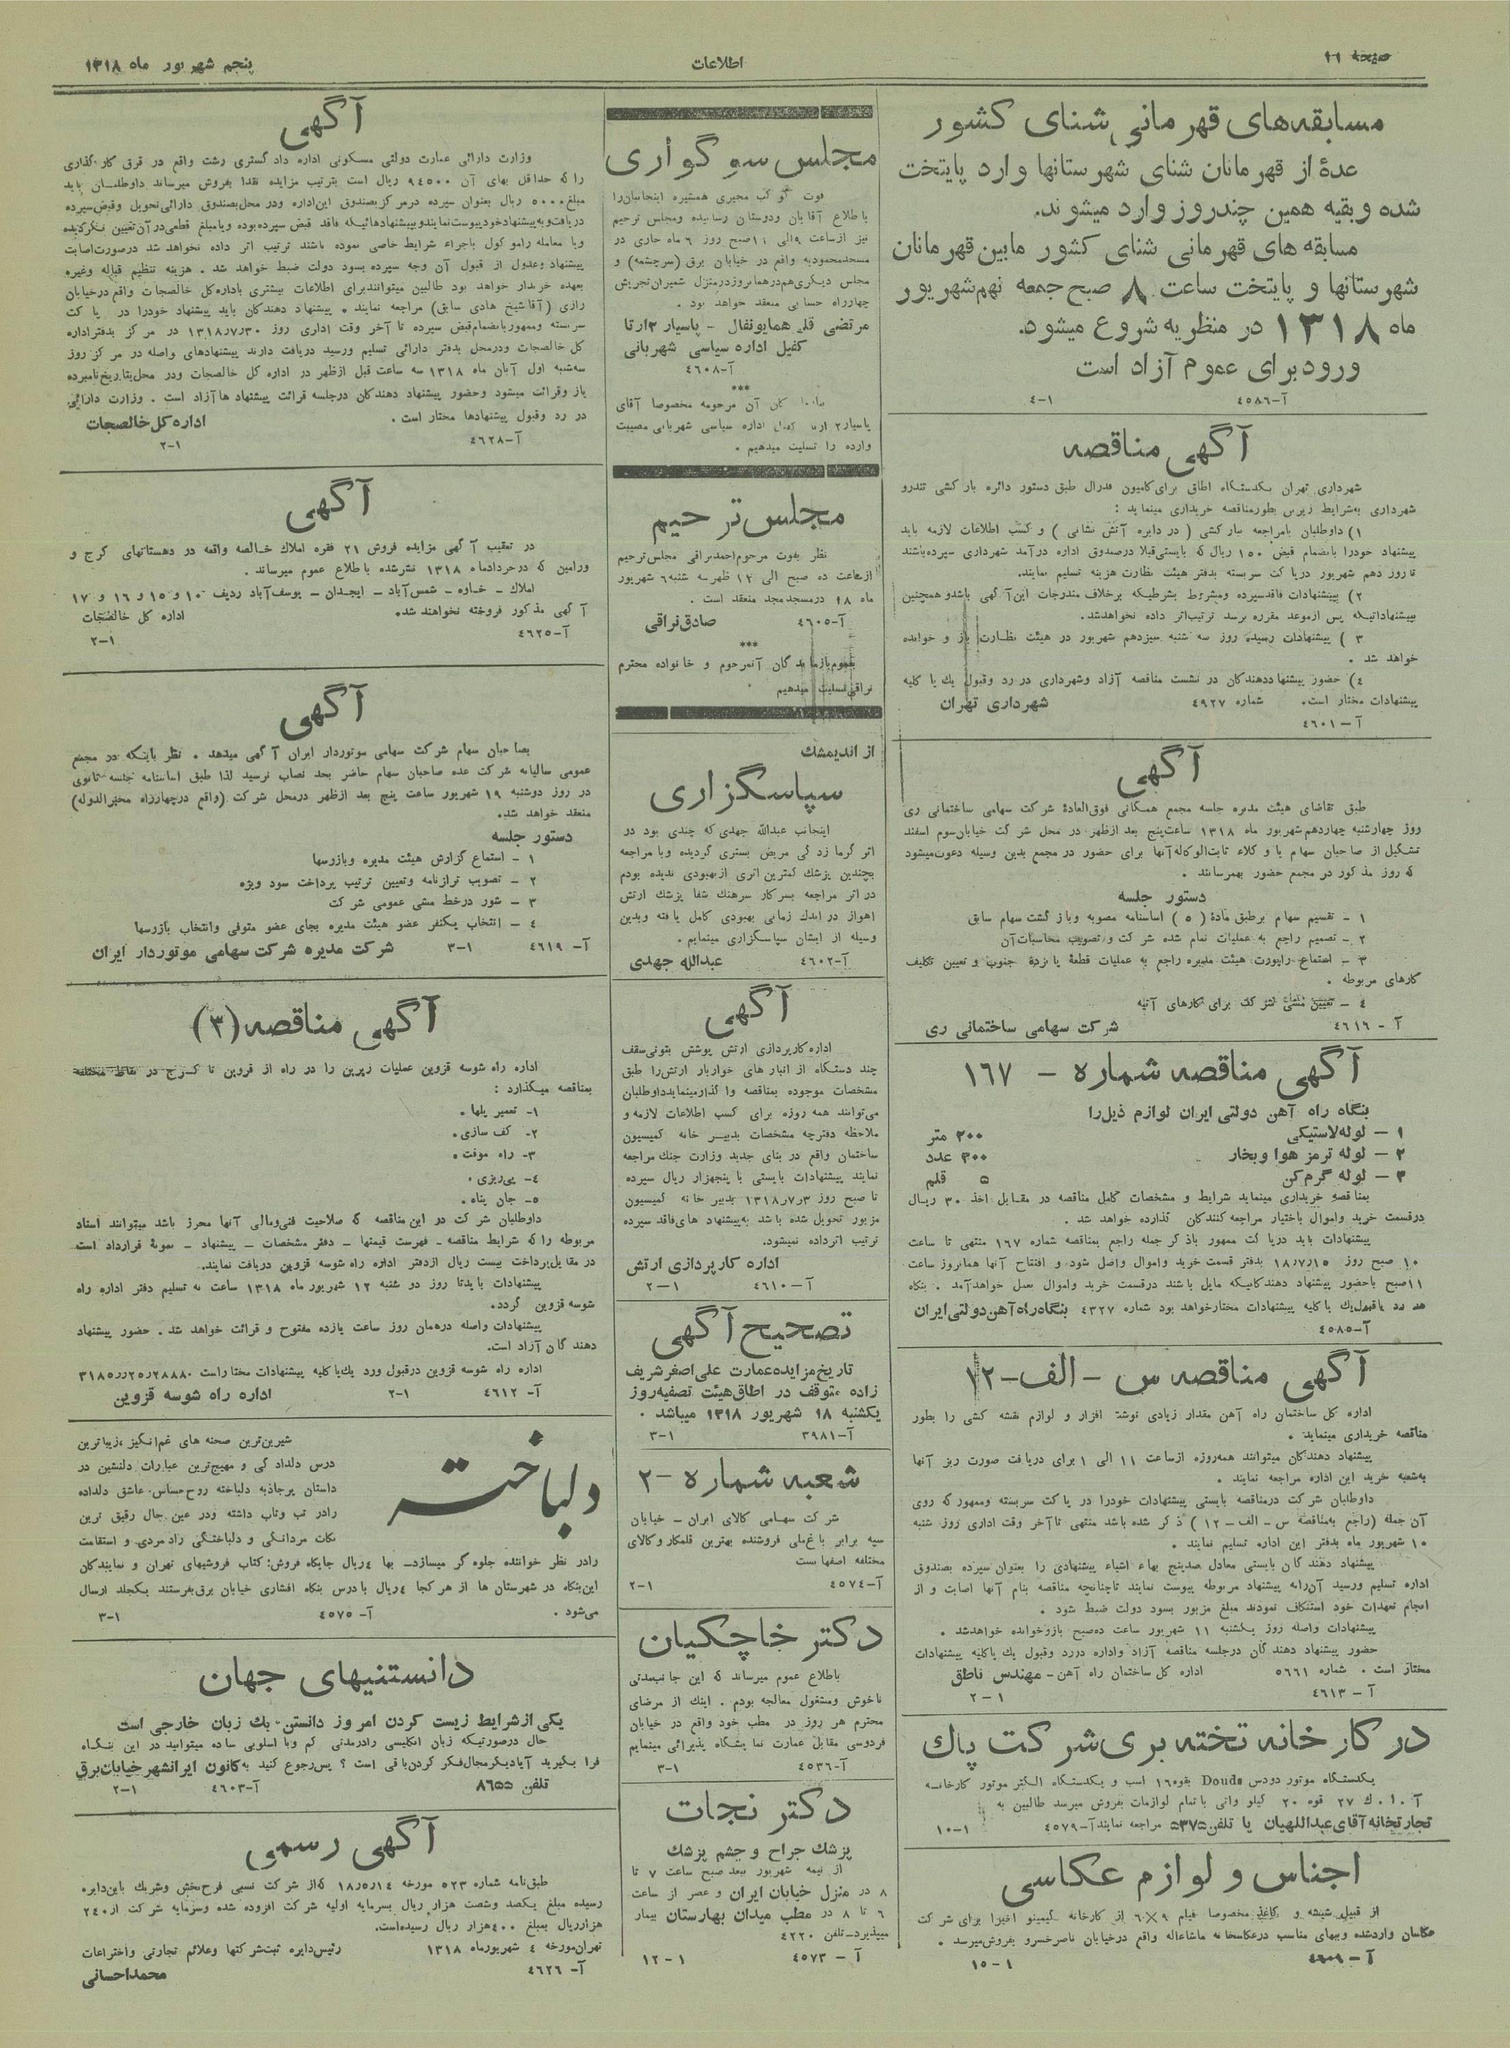 صفحه ١٦
اطلاعات
پنجم شهریور ماه ١٣١٨
مسابقه‌های قهرمانی شنای کشور
عدهٔ از قهرمانان شنای شهرستانها وارد پایتخت
شده و بقیه همین چندروز وارد میشوند.
مسابقه های قهرمانی شنای کشور مابین قهرمانان
شهرستانها و پایتخت ساعت ٨ صبح جمعه نهم شهریور
ماه ١٣١٨ در منظریه شروع میشود.
ورود برای عموم آزاد است
آ-٤٥٨٦ ١-٤
آگهی مناقصه
شهرداری تهران یکدستگاه اطاق برای کامیون فدرال طبق دستور دائره بارکشی تندرو
شهرداری به‌شرایط زیرین بطورمناقصه خریداری مینماید :
١) داوطلبان بامراجعه ببارکشی ( در دایره آتش نشانی ) و کسب اطلاعات لازمه باید
پیشنهاد خودرا بانضمام قبض ١٥٠ ریال که بایستی‌قبلا درصدوق اداره درآمد شهرداری سپرده‌باشند
تا روز دهم شهریور درپاکت سربسته بدفتر هیئت نظارت هزینه تسلیم نمایند.
٢) به‌پیشنهادات فاقدسپرده ومشروط بشرطیکه برخلاف مندرجات این‌آگهی باشدو همچنین
بپیشنهاداتیکه پس ازموعد مقرره برسد ترتیب‌اثر داده نخواهدشد.
٣ ) پیشنهادات رسیده روز سه شنبه سیزدهم شهریور در هیئت نظارت باز و خوانده
خواهد شد .
٤) حضور پیشنهاددهندکان در نشست مناقصه آزاد وشهرداری در رد وقبول یك یا کلیه
پیشنهادات مختار است. شماره ٤٩٢٧ شهرداری تهران
آ - ٤٦٠١
آگهی
طبق تقاضای هیئت مدیره جلسه مجمع همگانی فوق‌العادهٔ شرکت سهامی ساختمانی ری
روز چهارشنبه چهاردهم‌شهریور ماه ١٣١٨ ساعت‌پنج بعد ازظهر در محل شرکت خیابان‌سوم اسفند
تشکیل از صاحبان سهام یا و کلاء ثابت‌الوکاله‌آنها برای حضور در مجمع بدین وسیله دعوت‌میشود
که روز مذکور در مجمع حضور بهمرسانند .
دستور جلسه
١ - تقسیم سهام برطبق مادهٔ ( ٥ ) اساسنامه مصوبه وبازگشت سهام سابق
٢ - تصمیم راجع به عملیات تمام شده شرکت و تصویب محاسبات‌آن
٣ - استماع راپورت هیئت مدیره راجع به عملیات قطعهٔ پانزدهٔ جنوب و تعیین تکلیف
کارهای مربوطه .
٤ - تعیین مشی شرکت برای کارهای آتیه
آ - ٤٦١٦ شرکت سهامی ساختمانی ری
آگهی مناقصه شماره - ١٦٧
بنگاه راه آهن دولتی ایران لوازم ذیل‌را
١ - لوله‌لاستیکی ٢٠٠ متر
٢ - لوله ترمز هوا و بخار ٣٠٠ عدد
٣ - لوله گرم‌کن ٥ قلم
بمناقصه خریداری مینماید شرایط و مشخصات کامل مناقصه در مقابل اخذ ٣٠ ریال
درقسمت خرید واموال باختیار مراجعه‌کنندکان گذارده خواهد شد .
پیشنهادات باید درپاکت ممهور باذکر جمله راجع بمناقصه شماره ١٦٧ منتهی تا ساعت
١٠ صبح روز ١٨ر٧ر١٥ بدفتر قسمت خرید واموال واصل شود و افتتاح آنها همانروز ساعت
١١صبح باحضور پیشنهاد دهندکانیکه مایل باشند درقسمت خرید واموال بعمل خواهدآمد . بنگاه
در رد یاقبول‌یك یاکلیه پیشنهادات مختارخواهد بود شماره ٤٣٢٧ بنگاه‌راه‌آهن‌دولتی‌ایران
آ-٤٥٨٥
آگهی مناقصه س - الف-١٢
اداره کل ساختمان راه آهن مقدار زیادی نوشت افزار و لوازم نقشه کشی را بطور
مناقصه خریداری مینماید .
پیشنهاد دهندکان میتوانند همه‌روزه ازساعت ١١ الی ١ برای دریافت صورت ریز آنها
به‌شعبه خرید این اداره مراجعه نمایند .
داوطلبان شرکت درمناقصه بایستی پیشنهادات خودرا در پاکت سربسته وممهور که روی
آن جمله (راجع به‌مناقصه س - الف -١٢ ) ذکر شده باشد منتهی تاآخر وقت اداری روز شنبه
١٠ شهریور ماه بدفتر این اداره تسلیم نمایند .
پیشنهاد دهندگان بایستی معادل صدپنج بهاء اشیاء پیشنهادی را بعنوان سپرده بصندوق
اداره تسلیم ورسید آنرابه پیشنهاد مربوطه پیوست نمایند تاچنانچه مناقصه بنام آنها اصابت و از
انجام تعهدات خود استنکاف نمودند مبلغ مزبور بسود دولت ضبط شود .
پیشنهادات واصله روز یکشنبه ١١ شهریور ساعت ده‌صبح بازوخوانده خواهدشد .
حضور پیشنهاد دهندگان درجلسه مناقصه آزاد واداره دررد وقبول یك یاکلیه پیشنهادات
مختار است . شماره ٥٦٦١ اداره کل ساختمان راه آهن - مهندس ناطق
آ - ٤٦١٣ ١ - ٢
در کارخانه تخته بری‌شرکت پاك
یکدستگاه موتور دودس Douds بقوه ١٦ اسب و یکدستگاه الکتر موتور کارخانه
آ . ا . ك ٢٧ قوه ٢٠ کیلو واتی باتمام لوازمات بفروش میرسد طالبین به
تجارتخانه آقای‌عبداللهیان یا تلفن ٥٣٧٥ مراجعه نمایند آ-٤٥٧٩ ١-١٠
اجناس و لوازم عکاسی
از قبیل شیشه و کاغذ مخصوصا فیلم ٩×٦ از کارخانه گیمینو اخیرا برای شرکت
عکاسان واردشده وببهای مناسب درعکاسخانه ماشااله واقع درخیابان ناصرخسرو بفروش‌میرسد .
آ - ٤٦٠٩ ١ - ١٥
مجلس سوگواری
فوت کوکب مجیری همشیره اینجانبان‌را
باطلاع آقایان ودوستان رسانیده ومجلس ترحیم
نیز ازساعت ٩الی ١١صبح روز ٦ ماه جاری در
مسجدمحمودیه واقع در خیابان برق (سرچشمه) و
مجلس دیگری‌هم‌درهمانروزدرمنزل شمیران‌تجریش
چهارراه حسابی منعقد خواهد بود .
مرتضی قلی همایونفال - پاسیار ٢ارتا
کفیل اداره سیاسی شهربانی
آ-٤٦٠٨
***
آن مرحومه مخصوصا آقای
پاسیار٢ ارتا کفیل اداره سیاسی شهربانی مصیبت
وارده را تسلیت میدهیم .
مجلس ترحیم
نظر بفوت مرحوم‌احمدنراقی مجلس‌ترحیم
ازساعت ده صبح الی ١٢ ظهر سه شنبه٦ شهریور
ماه ١٨ درمسجدمجد منعقد است .
آ-٤٦٠٥ صادق‌نراقی
***
بعموم‌بازماندگان آنمرحوم و خانواده محترم
نراقی‌تسلیت میدهیم
از اندیمشك
سپاسگزاری
اینجانب عبدالله جهدی که چندی بود در
اثر گرمازدگی مریض بستری گردیده وبا مراجعه
بچندین پزشك کمترین اثری ازبهبودی ندیده بودم
در اثر مراجعه بسرکار سرهنك شفا پزشك ارتش
اهواز در اندك زمانی بهبودی کامل یافته وبدین
وسیله از ایشان سپاسگزاری مینمایم .
آ-٤٦٠٢ عبدالله جهدی
آگهی
اداره‌کارپردازی ارتش پوشش بتونی‌سقف
چند دستگاه از انبار های خواربار ارتش‌را طبق
مشخصات موجوده بمناقصه واگذارمینماید.داوطلبان
می‌توانند همه روزه برای کسب اطلاعات لازمه و
ملاحظه دفترچه مشخصات بدبیر خانه کمیسیون
ساختمان واقع در بنای جدید وزارت جنك مراجعه
نمایند پیشنهادات بایستی با پنجهزار ریال سپرده
تا صبح روز ٣ر٧ر١٣١٨ بدبیر خانه کمیسیون
مزبور تحویل شده باشد به‌پیشنهاد های‌فاقد سپرده
ترتیب اثرداده نمیشود.
اداره کارپردازی ارتش
آ-٤٦١٠ ١-٢
تصحیح آگهی
تاریخ‌مزایده‌عمارت علی‌اصغرشریف
زاده متوقف در اطاق‌هیئت تصفیه‌روز
یکشنبه ١٨ شهریور ١٣١٨ میباشد .
آ-٣٩٨١ ١-٣
شعبه شماره -٢
شرکت سهامی کالای ایران - خیابان
سپه برابر باغ‌ملی فروشنده بهترین قلمکار وکالای
مختلفه اصفهانست
آ-٤٥٧٤ ١-٢
دکتر خاچکیان
باطلاع عموم میرساند که این جانب‌مدتی
ناخوش ومشغول معالجه بودم . اینك از مرضای
محترم هر روز در مطب خود واقع در خیابان
فردوسی مقابل عمارت نمایشگاه پذیرائی مینمایم
آ-٤٥٣٦ ١-٣
دکتر نجات
پزشك جراح و چشم پزشك
از نیمه شهریور ببعد صبح ساعت ٧ تا
٨ در منزل خیابان ایران و عصر از ساعت
٦ تا ٨ در مطب میدان بهارستان بیمار
میپذیرد-تلفن ٤٢٢٠
آ - ٤٥٧٣ ١ - ١٢
آگهی
وزارت دارائی عمارت دولتی مسکونی اداره دادگستری رشت واقع در قرق کارگذاری
را که حداقل بهای آن ٩٤٥٠٠ ریال است بترتیب مزایده نقدا بفروش میرساند داوطلبان باید
مبلغ ٥٠٠٠ ریال بعنوان سپرده درمرکزبصندوق این‌اداره ودر محل‌بصندوق دارائی‌تحویل وقبض‌سپرده
دریافت‌وبه‌پیشنهادخودپیوست‌نمایندوبپیشنهادهائیکه فاقد قبض سپرده‌بوده ویامبلغ قطعی‌درآن‌تعیین نگردیده
ویا معامله راموکول باجراء شرایط خاصی نموده باشند ترتیب اثر داده نخواهد شد درصورت‌اصابت
پیشنهاد وعدول از قبول آن وجه سپرده بسود دولت ضبط خواهد شد . هزینه تنظیم قباله وغیره
بعهده خریدار خواهد بود طالبین میتوانندبرای اطلاعات بیشتری باداره‌کل خالصجات واقع درخیابان
رازی (آقاشیخ هادی سابق) مراجعه نمایند . پیشنهاد دهندکان باید پیشنهاد خودرا در پاکت
سربسته وممهوربانضمام‌قبض سپرده تا آخر وقت اداری روز ٣٠ر٧ر١٣١٨ در مرکز بدفتراداره
کل خالصجات ودرمحل بدفتر دارائی تسلیم ورسید دریافت دارند پیشنهادهای واصله در مرکز روز
سه‌شنبه اول آبان ماه ١٣١٨ سه ساعت قبل ازظهر در اداره کل خالصجات ودر محل‌بتاریخ‌نامبرده
باز وقرائت میشود وحضور پیشنهاد دهندکان درجلسه قرائت پیشنهادها آزاد است . وزارت دارائی
در رد وقبول پیشنهادها مختار است . اداره‌کل‌خالصجات
آ-٤٦٢٨ ١-٢
آگهی
در تعقیب آگهی مزایده فروش ٢١ فقره املاك خالصه واقعه در دهستانهای کرج و
ورامین که درخردادماه ١٣١٨ نشرشده باطلاع عموم میرساند.
املاك - خاوه - شمس‌آباد - ایجدان - یوسف‌آباد ردیف ١٠-١٥و ١٦ و ١٧
آگهی مذکور فروخته نخواهند شد. اداره کل خالصجات
آ-٤٦٢٥ ١-٢
آگهی
بصاحبان سهام شرکت سهامی موتوردار ایران آگهی میدهد . نظر باینکه در مجمع
عمومی سالیانه شرکت عده صاحبان سهام حاضر بحد نصاب نرسید لذا طبق اساسنامه جلسه ثانوی
در روز دوشنبه ١٩ شهریور ساعت پنج بعد ازظهر درمحل شرکت (واقع درچهارراه مخبرالدوله)
منعقد خواهد شد.
دستور جلسه
١ - استماع گزارش هیئت مدیره وبازرسها
٢ - تصویب ترازنامه وتعیین ترتیب پرداخت سود ویژه
٣ - شور درخط مشی عمومی شرکت
٤ - انتخاب یکنفر عضو هیئت مدیره بجای عضو متوفی وانتخاب بازرسها
آ- ٤٦١٩ ١-٣ شرکت مدیره شرکت سهامی موتوردار ایران
آگهی مناقصه (٣)
اداره راه شوسه قزوین عملیات زیرین را در راه از قزوین تا کرج در نقاط مختلفه
بمناقصه میگذارد :
١- تعمیر پلها .
٢- کف سازی .
٣- راه موقت .
٤- پی‌ریزی .
٥- جان پناه .
داوطلبان شرکت در این مناقصه که صلاحیت فنی‌ومالی آنها محرز باشد میتوانند اسناد
مربوطه را که شرایط مناقصه - فهرست قیمتها - دفتر مشخصات - پیشنهاد - نمونهٔ قرارداد است
در مقابل‌پرداخت بیست ریال ازدفتر اداره راه شوسه قزوین دریافت نمایند.
پیشنهادات بایدتا روز دو شنبه ١٢ شهریور ماه ١٣١٨ ساعت نه تسلیم دفتر اداره راه
شوسه قزوین گردد.
پیشنهادات واصله درهمان روز ساعت یازده مفتوح و قرائت خواهد شد . حضور پیشنهاد
دهندگان آزاد است.
اداره راه شوسه قزوین درقبول ورد یك‌یاکلیه پیشنهادات مختاراست
آ- ٤٦١٢ ١-٢ اداره راه شوسه قزوین
دلباخته
شیرین‌ترین صحنه های غم‌انگیز ،زیباترین
درس دلدادگی و مهیج‌ترین عبارات دلنشین در
داستان پرجاذبه دلباخته روح‌حساس عاشق دلداده
رادر تب وتاب داشته ودر عین حال رقیق ترین
نکات مردانگی و دلباختگی رادمردی و استقامت
رادر نظر خواننده جلوه گر میسازد- بها ٤ریال جایگاه فروش: کتاب فروشیهای تهران و نمایندکان
این‌بنگاه در شهرستان ها از هرکجا ٤ریال باآدرس بنگاه افشاری خیابان برق‌بفرستند یکجلد ارسال
می‌شود . آ- ٤٥٧٥ ١-٣
دانستنیهای جهان
یکی ازشرایط زیست کردن امروز دانستن یك زبان خارجی است
حال درصورتیکه زبان انگلیسی رادرمدتی کم وبا اسلوبی ساده میتوانید در این بنگاه
فرا بگیرید آیادیگرمجال‌فکر کردن‌باقی است ؟ پس‌رجوع کنید به‌کانون ایرانشهرخیابان‌برق
تلفن ٨٦٥٥ آ-٤٦٠٣ ١-٢
آگهی رسمی
طبق‌نامه شماره ٥٢٣ مورخه ١٨ر٥ر١٤ که‌از شرکت نسبی فرح‌بخش وشریك باین‌دایره
رسیده مبلغ یکصد وشصت هزار ریال بسرمایه اولیه شرکت افزوده شده وسرمایه شرکت از٢٤٠
هزارریال بمبلغ ٤٠٠هزار ریال رسیده‌است.
تهران‌مورخه ٤ شهریورماه ١٣١٨ رئیس‌دایره ثبت‌شرکتها وعلائم تجارتی واختراعات
آ- ٤٦٢٦ محمداحسانی